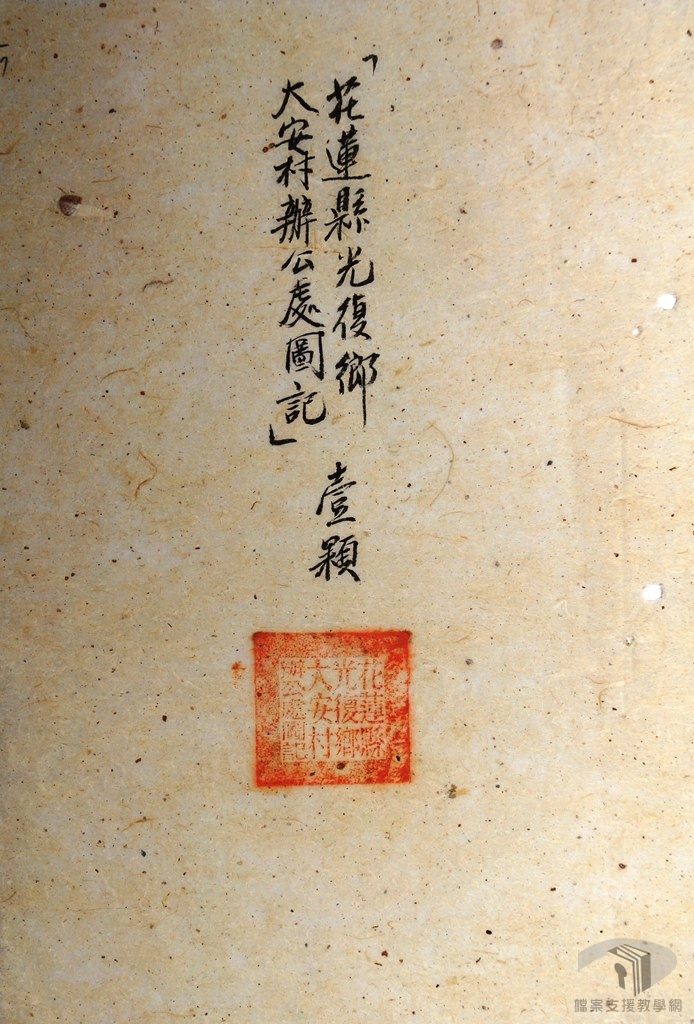 「花蓮縣光復鄉
大安村辦公處圖記」
壹顆
花蓮縣
光復鄉
大安村
辦公處圖記
檔案支援教學網